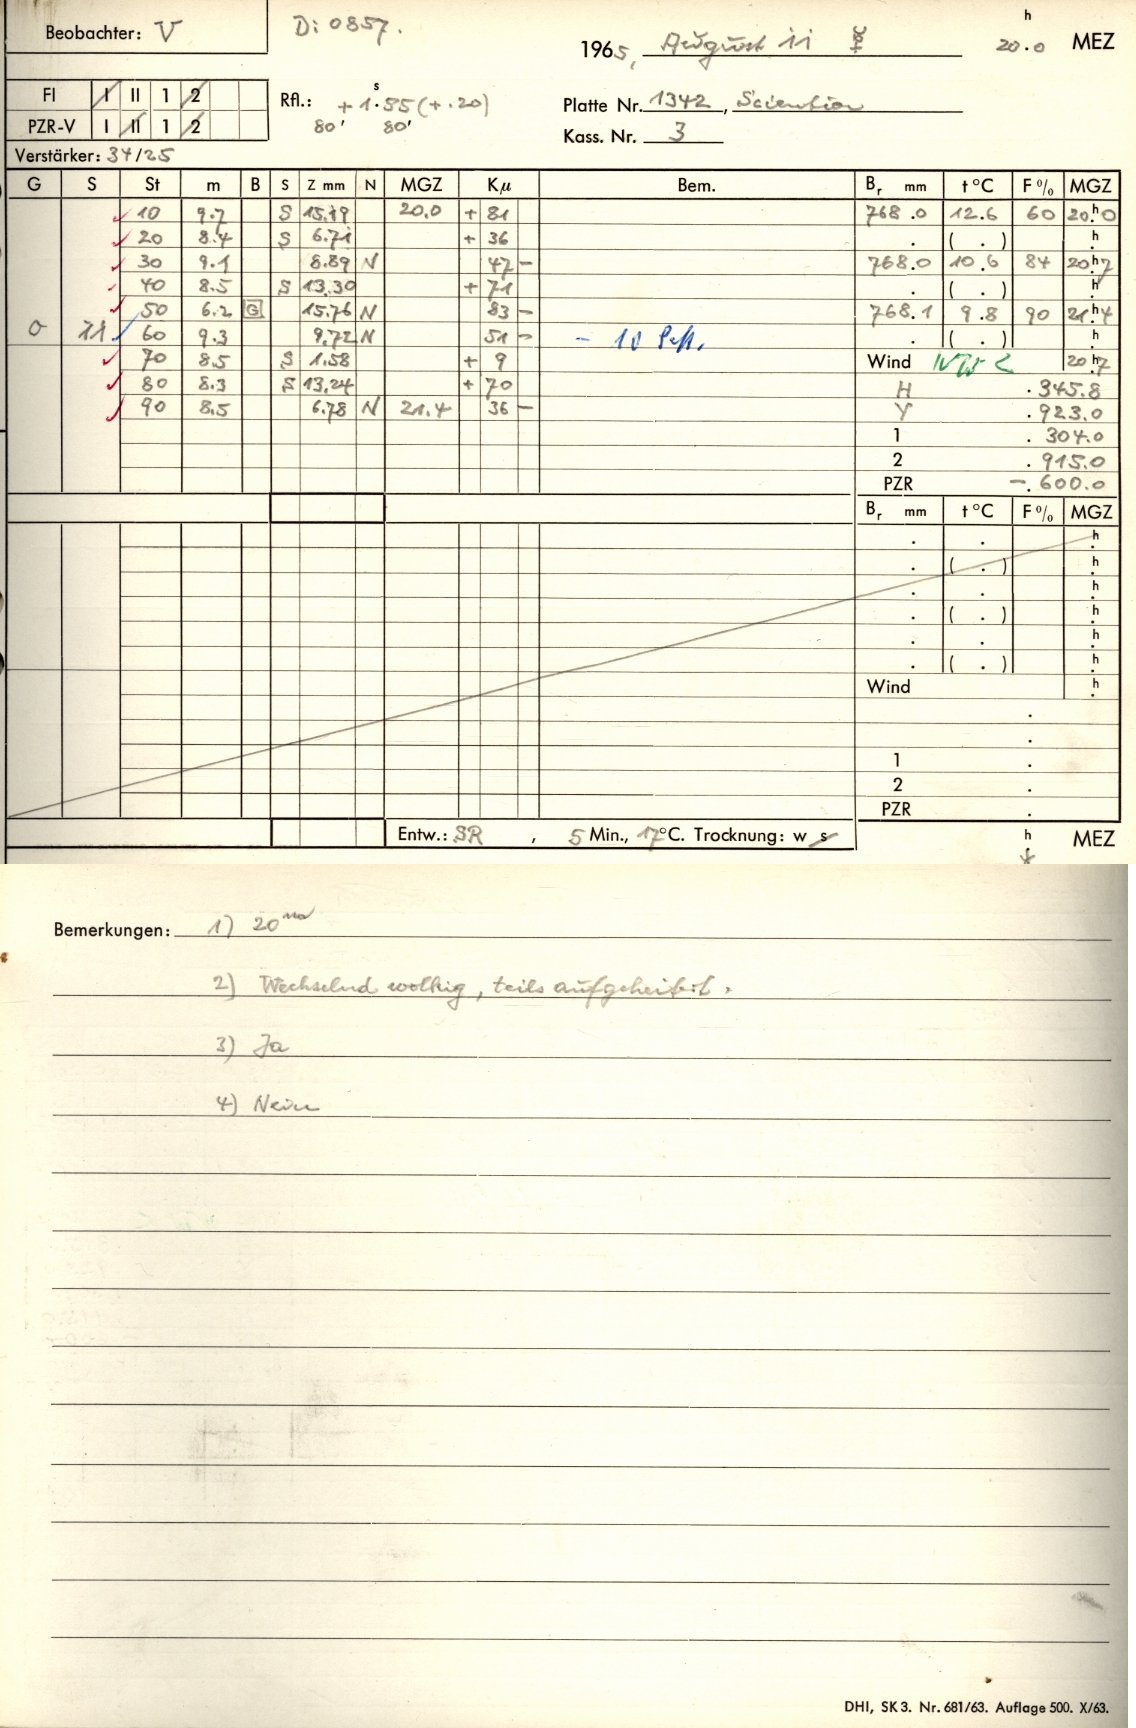 Beobachter: V
Di 0857.
h
1965, August 11 20.0 MEZ
FI I II 1 2
Rfl.: + 1.55 (+.20)
s
80' 80'
Platte Nr. 1342, Scientia
PZR-V I II 1 2
Kass. Nr. 3
Verstärker: 34/25
G S St m B S Z mm N MGZ Kμ Bem. Br mm t°C F% MGZ
10 9.7 S 15.19 20.0 + 81 768.0 12.6 60 20.h0
20 8.4 S 6.71 + 36 . ( . ) h
30 9.1 8.89 N 47 - 768.0 10.6 84 20.h7
40 8.5 S 13.30 + 71 . ( . ) h
50 6.2 G 15.76 N 83 - 768.1 9.8 90 21.h4
0 71 60 9.3 9.72 N 51 - - 10 Sek. . ( . ) h
70 8.5 S 1.58 + 9 Wind NW 2 20.h7
80 8.3 S 13.24 + 70 H .345.8
90 8.5 6.78 N 21.4 36 - Y .923.0
1 .304.0
2 .915.0
PZR -.600.0
Br mm t°C F% MGZ
. . h
. ( . ) h
. . h
. ( . ) h
. . h
. ( . ) h
Wind h
.
.
1 .
2 .
PZR .
Entw.: SR , 5 Min., 17°C. Trocknung: w s
h
MEZ
Bemerkungen: 1) 20
2) Wechselnd wolkig, teils aufgeheitert.
3) Ja
4) Nein
DHI, SK 3. Nr. 681/63. Auflage 500. X/63.